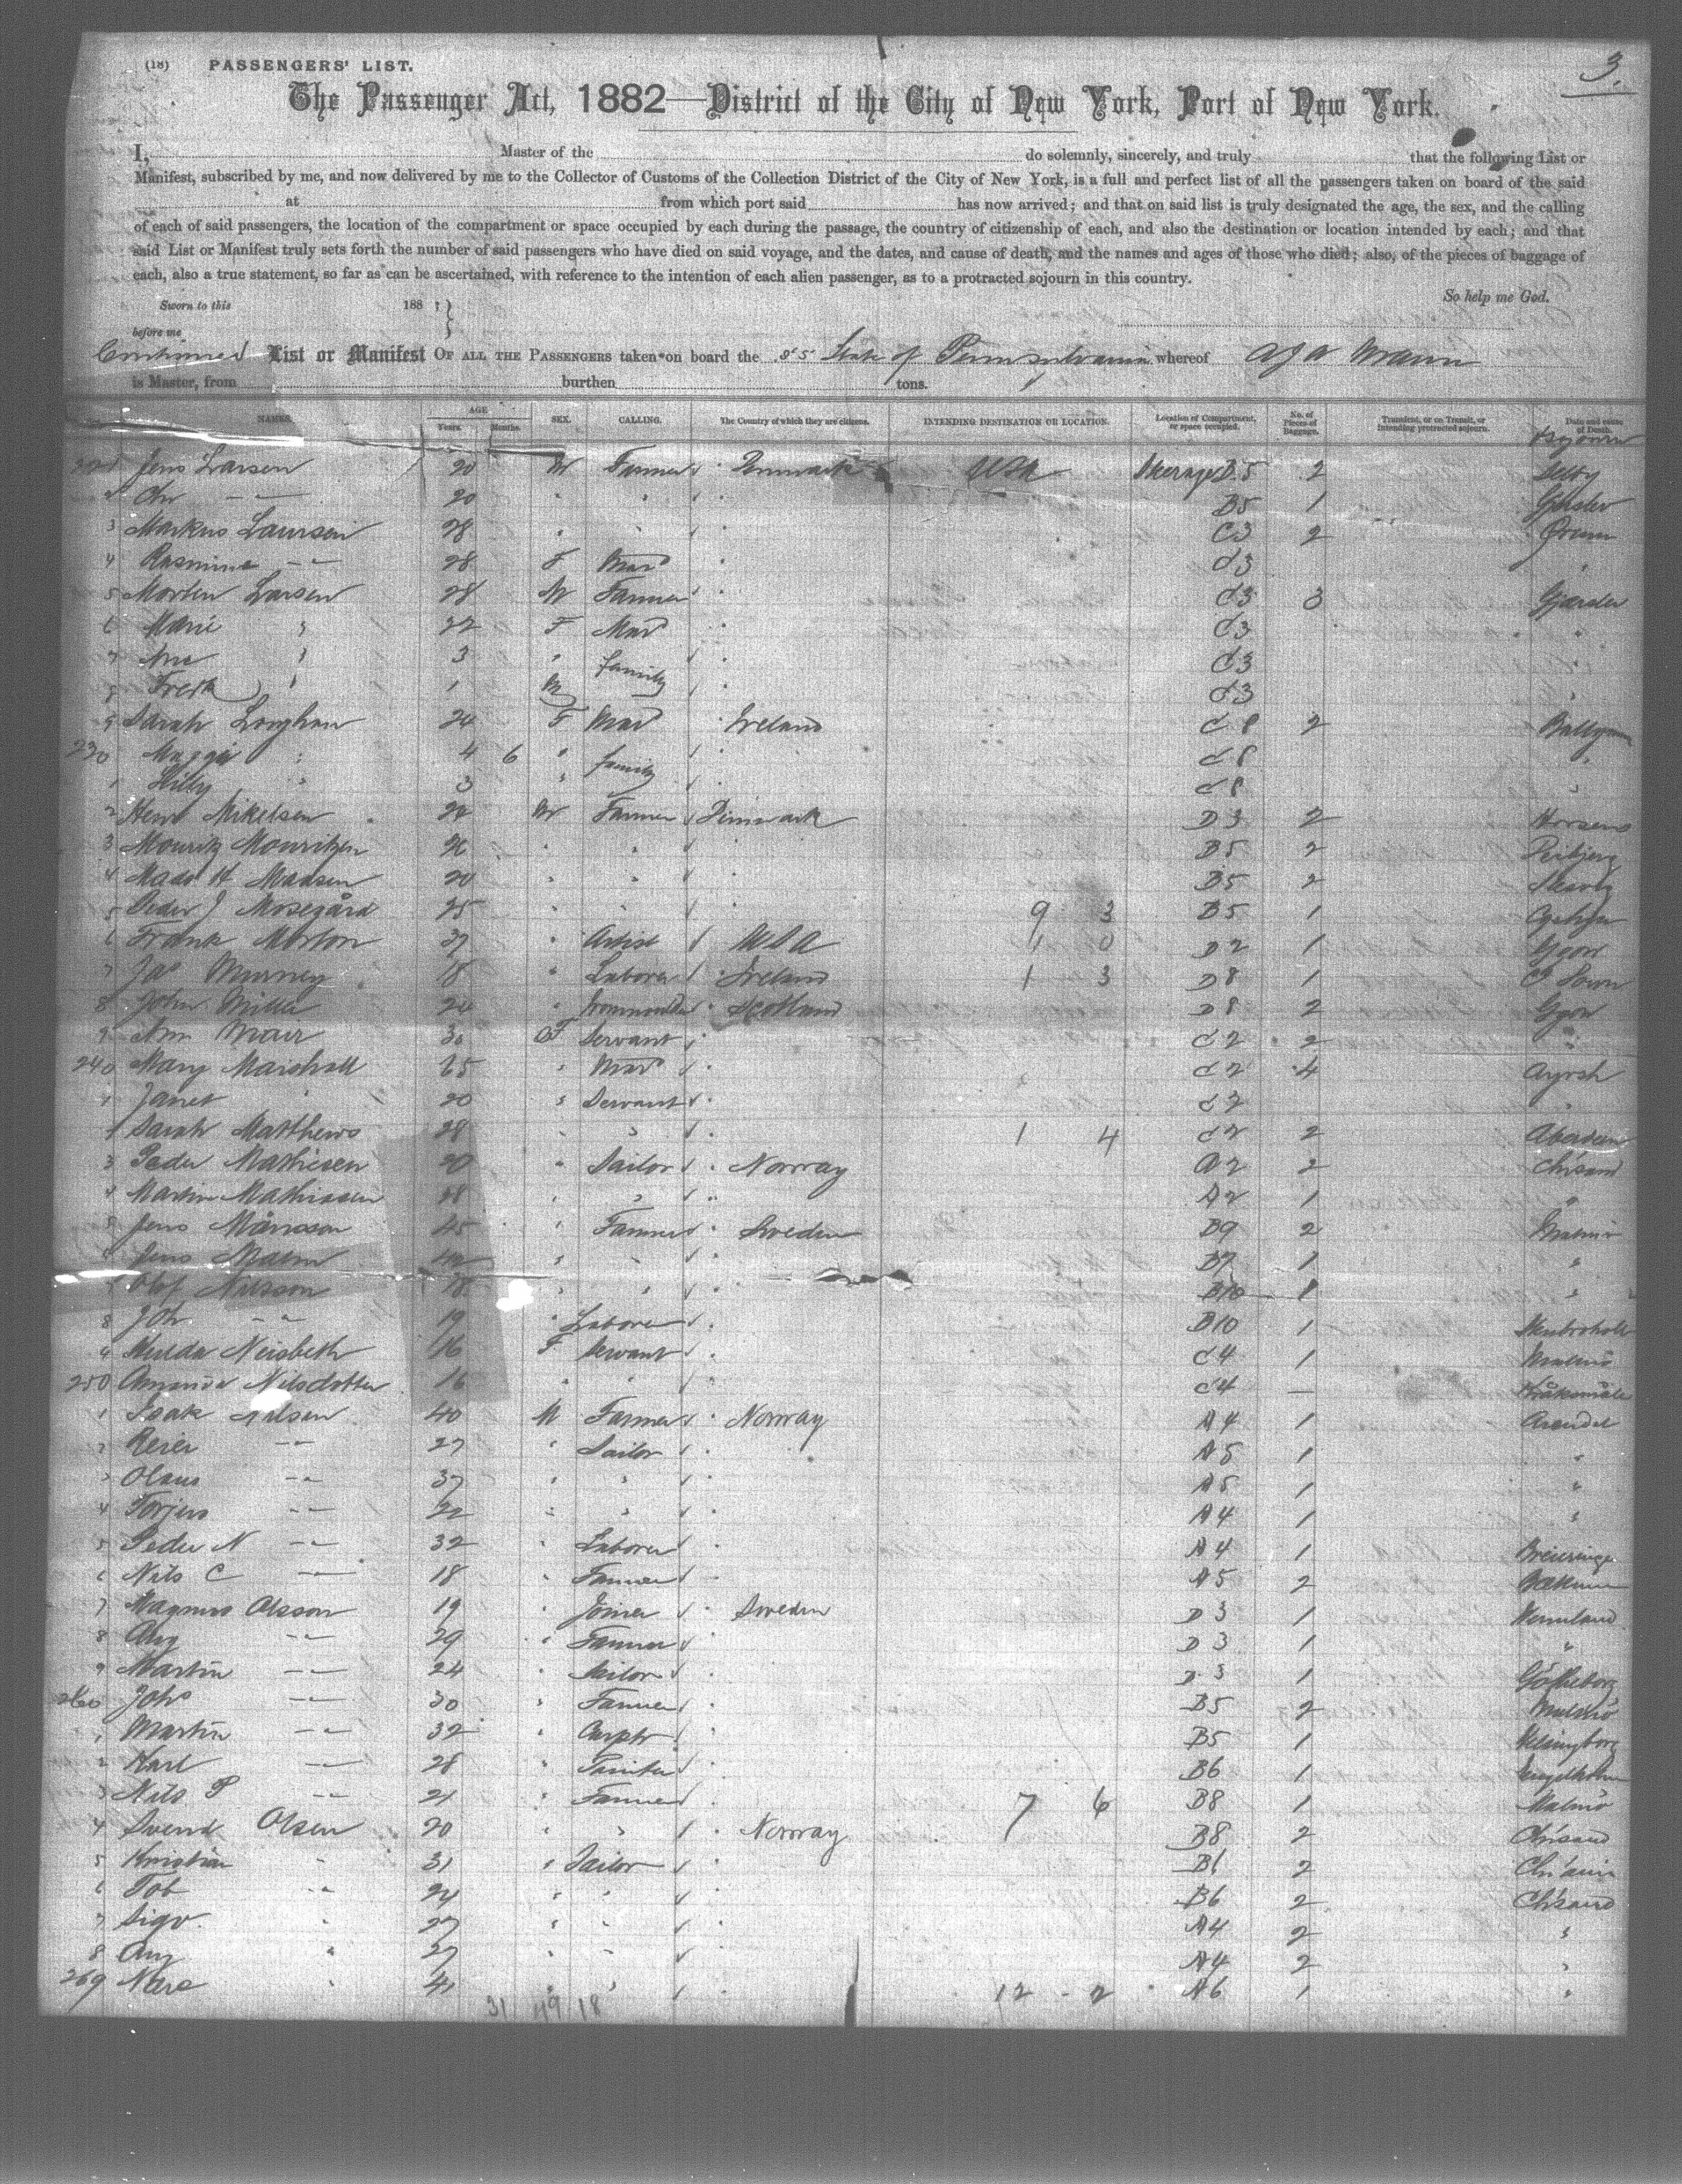 3.
(18) PASSENGERS' LIST.
The Passenger Act, 1882—District of the City of New York, Port of New York.
I, Master of the do solemnly, sincerely, and truly that the following List or
Manifest, subscribed by me, and now delivered by me to the Collector of Customs of the Collection District of the City of New York, is a full and perfect list of all the passengers taken on board of the said
at from which port said has now arrived; and that on said list is truly designated the age, the sex, and the calling
of each of said passengers, the location of the compartment or space occupied by each during the passage, the country of citizenship of each, and also the destination or location intended by each; and that
said List or Manifest truly sets forth the number of said passengers who have died on said voyage, and the dates, and cause of death, and the names and ages of those who died; also, of the pieces of baggage of
each, also a true statement, so far as can be ascertained, with reference to the intention of each alien passenger, as to a protracted sojourn in this country.
So help me God.
Sworn to this 188
before me
Continued List or Manifest OF ALL THE PASSENGERS taken on board the SS State of Pennsylvania whereof A J A Mann
is Master, from burthen tons.
NAMES. AGE Years. Months. SEX. CALLING. The Country of which they are citizens. INTENDING DESTINATION OR LOCATION. Location of Compartment, or space occupied. No. of Pieces of Baggage. Transient, or on Transit, or intending protracted sojourn. Date and cause of Death.
Jens Larsen 20 M Farmer Denmark USA Steerage B5 2
2 Chr —"— 20 " " B5 1
3 Markus Laursen 28 " " C3 2
4 Rasmine —"— 28 F Mar'd C3 "
5 Morten Larsen 28 M Farmer C3 3
6 Marie " 22 F Mar'd C3 "
7 Ane " 3 " family C3 "
8 Fredk " 1 M C3 "
9 Sarah Loughran 24 F Mar'd Ireland C8 2
230 Maggie " 4 6 " family C8 "
1 " 3 " C8 "
2 Mikelsen 24 M Farmer Denmark D3 2 Horsens
3 Mouritz Mouritzen " " B5 2
4 Mads H Madsen 20 " " B5 2
5 Peder J Mosegård 25 " " 9 3 B5 1
6 Frank Morton 37 " Artist USA 1 0 D2 1 Ggow
7 Jas Murney 18 " Laborer Ireland 1 3 D8 1
8 John Miller 24 " Ironmoulder Scotland D8 2 Ggow
9 Ann Moar 30 F Servant C2 2 "
240 Mary Marshall 65 " Mar'd C2 4 Ayrsh
1 Janet " 20 " Servant C2 "
Sarah Matthews 28 " " 1 4 C2 2 Aberdeen
3 Peder Mathiesen 20 " Sailor Norway A2 2 Chrsand
4 Martin Mathiassen 28 " " A2 1 "
5 Jens Månsson 45 " Farmer Sweden B9 2 Malmö
Jens Malm 42 " " B7 1 "
Olof Nilsson 18 " " B10 1 "
8 Joh —"— 19 " Laborer B10 1
Hulda Neisbeth 16 F Servant C4 1 Malmö
250 Nilsdotter 16 " " C4 — Kråksmåla
1 Isak Nilsen 40 M Farmer Norway A4 1 Arendal
2 Reier —"— 27 " Sailor A5 1 "
3 Olaus —"— 37 " " A5 1 "
4 Torjus —"— 22 " " A4 1 "
5 Peder N —"— 32 " Laborer A4 1
6 Nils C —"— 18 " Farmer A5 2
7 Magnus Olsson 19 " Joiner Sweden D3 1 Vermland
8 Aug —"— 29 " Farmer D3 1 "
9 Martin —"— 24 " Sailor D3 1 Götheborg
260 Johs —"— 30 " Farmer B5 2 Malmö
1 Martin —"— 32 " Carptr B5 1 Helsingborg
2 Karl —"— 28 " Painter B6 1 Engelholm
3 Nils P —"— 21 " Farmer 7 6 B8 1 Malmö
4 Svend Olsen 20 " " Norway B8 2 Chrsand
5 Kristian " 31 " Sailor B6 2
6 Tob —"— 24 " " B6 2 Chrsand
7 Sigv. " 27 " " A4 2 "
8 Aug " 27 " " A4 2 "
269 " 41 " " 12 - 2 A6 1 "
31 49 18